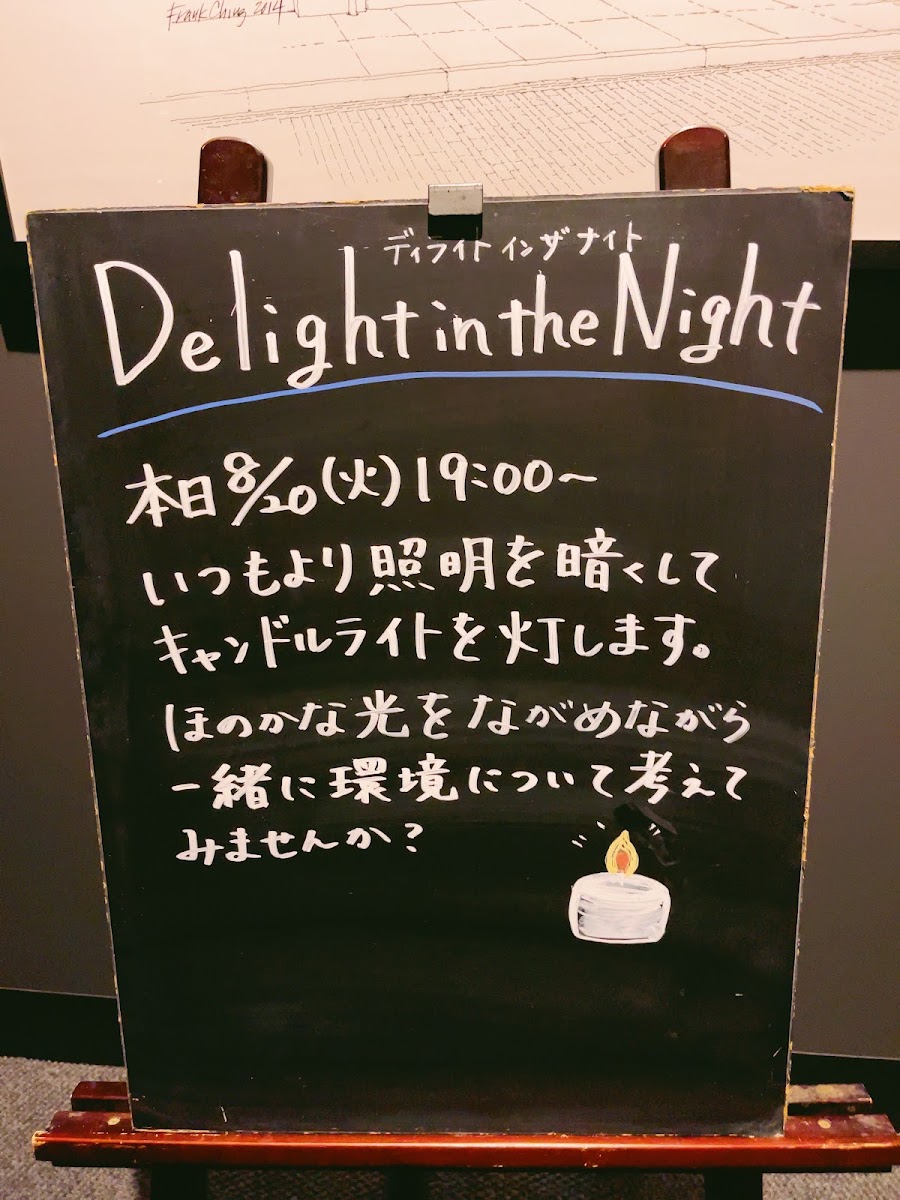 Frank Ching 2014
ディライト イン ザ ナイト
Delight in the Night
本日 8/20 (火) 19:00〜
いつもより照明を暗くして
キャンドルライトを灯します。
ほのかな光をながめながら
一緒に環境について考えて
みませんか?